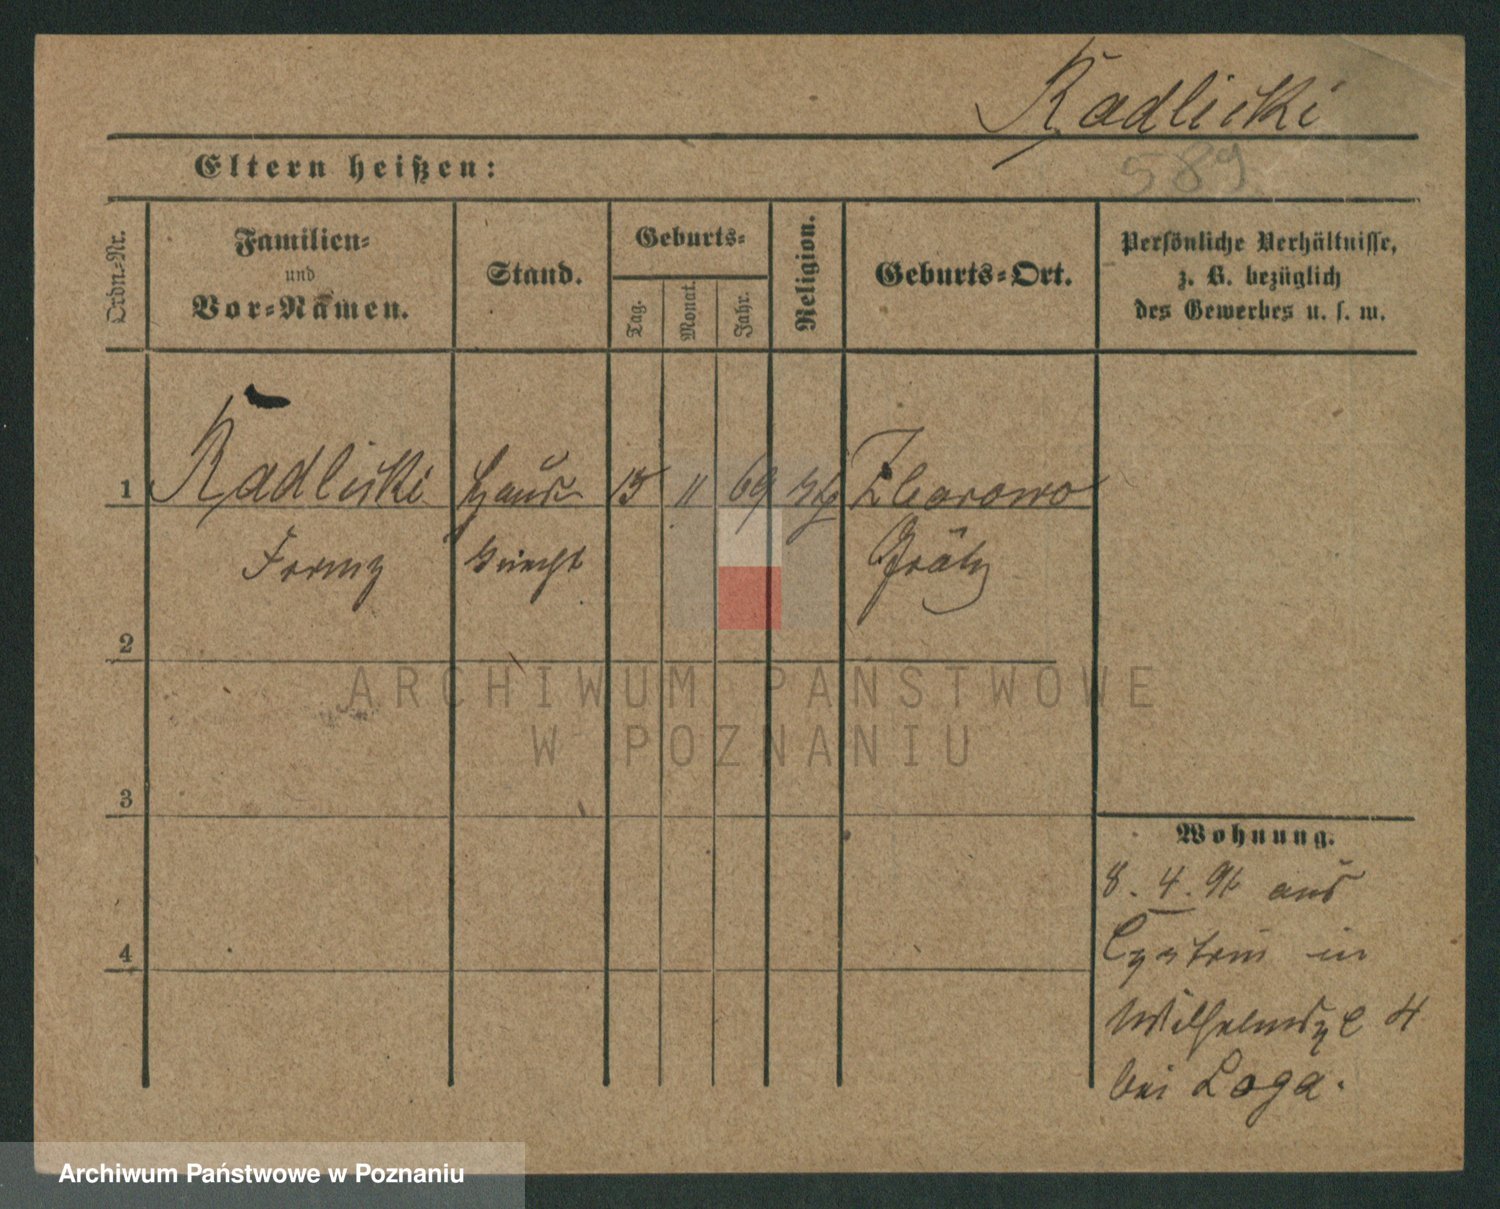 Radlicki
589
Eltern heißen:
Ordn.-Nr.
Familien-
und
Vor-Namen.
Stand.
Geburts-
Tag.
Monat.
Jahr.
Religion.
Geburts-Ort.
Persönliche Verhältnisse,
z. B. bezüglich
des Gewerbes u. s. w.
1 Radlicki Haus- 15 11 69 Zbarowo
Franz knecht Grätz
2
3
4
Wohnung.
8. 4. 91 aus
in
Wilhelmspl 4
bei Loga.
ARCHIWUM PAŃSTWOWE
W POZNANIU
Archiwum Państwowe w Poznaniu